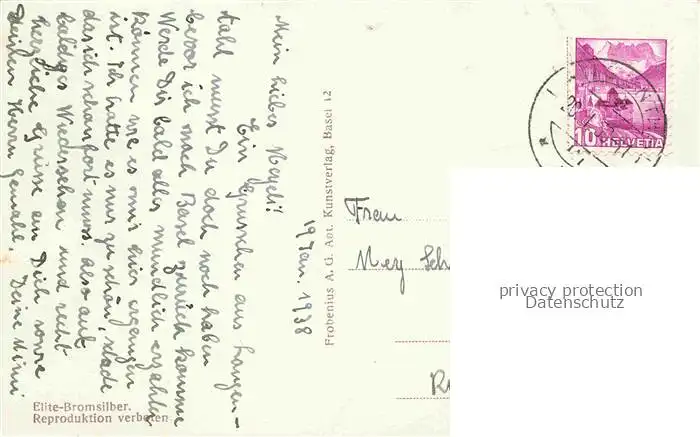 Mein liebes Megeli!
Ein Grüsschen aus Langen-
tahl musst Du doch noch haben
bevor ich nach Basel zurück komme
Werde Dir bald alles mündlich erzählen
können wie es mir hier ergangen
ist. Ich hatte es nur zu schön, schade
das ich schon fort muss. also auf
baldiges Wiedersehen und recht
herzliche Grüsse an Dich sowie
Deinen Herrn Gemahl. Deine Mimi
19 Jan. 1938
Frobenius A. G. Abt. Kunstverlag, Basel 12
Elite-Bromsilber.
Reproduktion verboten
10 HELVETIA
Frau
Mey Sch
privacy protection
Datenschutz